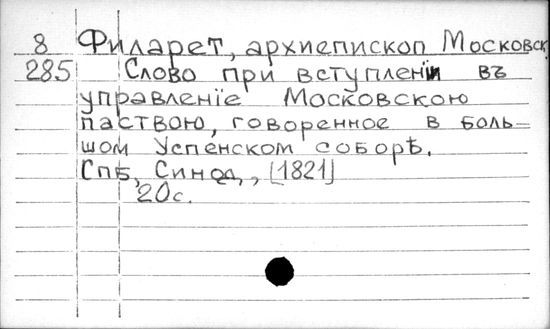 8 Филарет, архиепископ Московск.
285 Слово при вступленіи въ
управленіе Московскою
паствою, говоренное в боль-
шом Успенском соборѣ.
Спб, Синод., [1821]
20с.